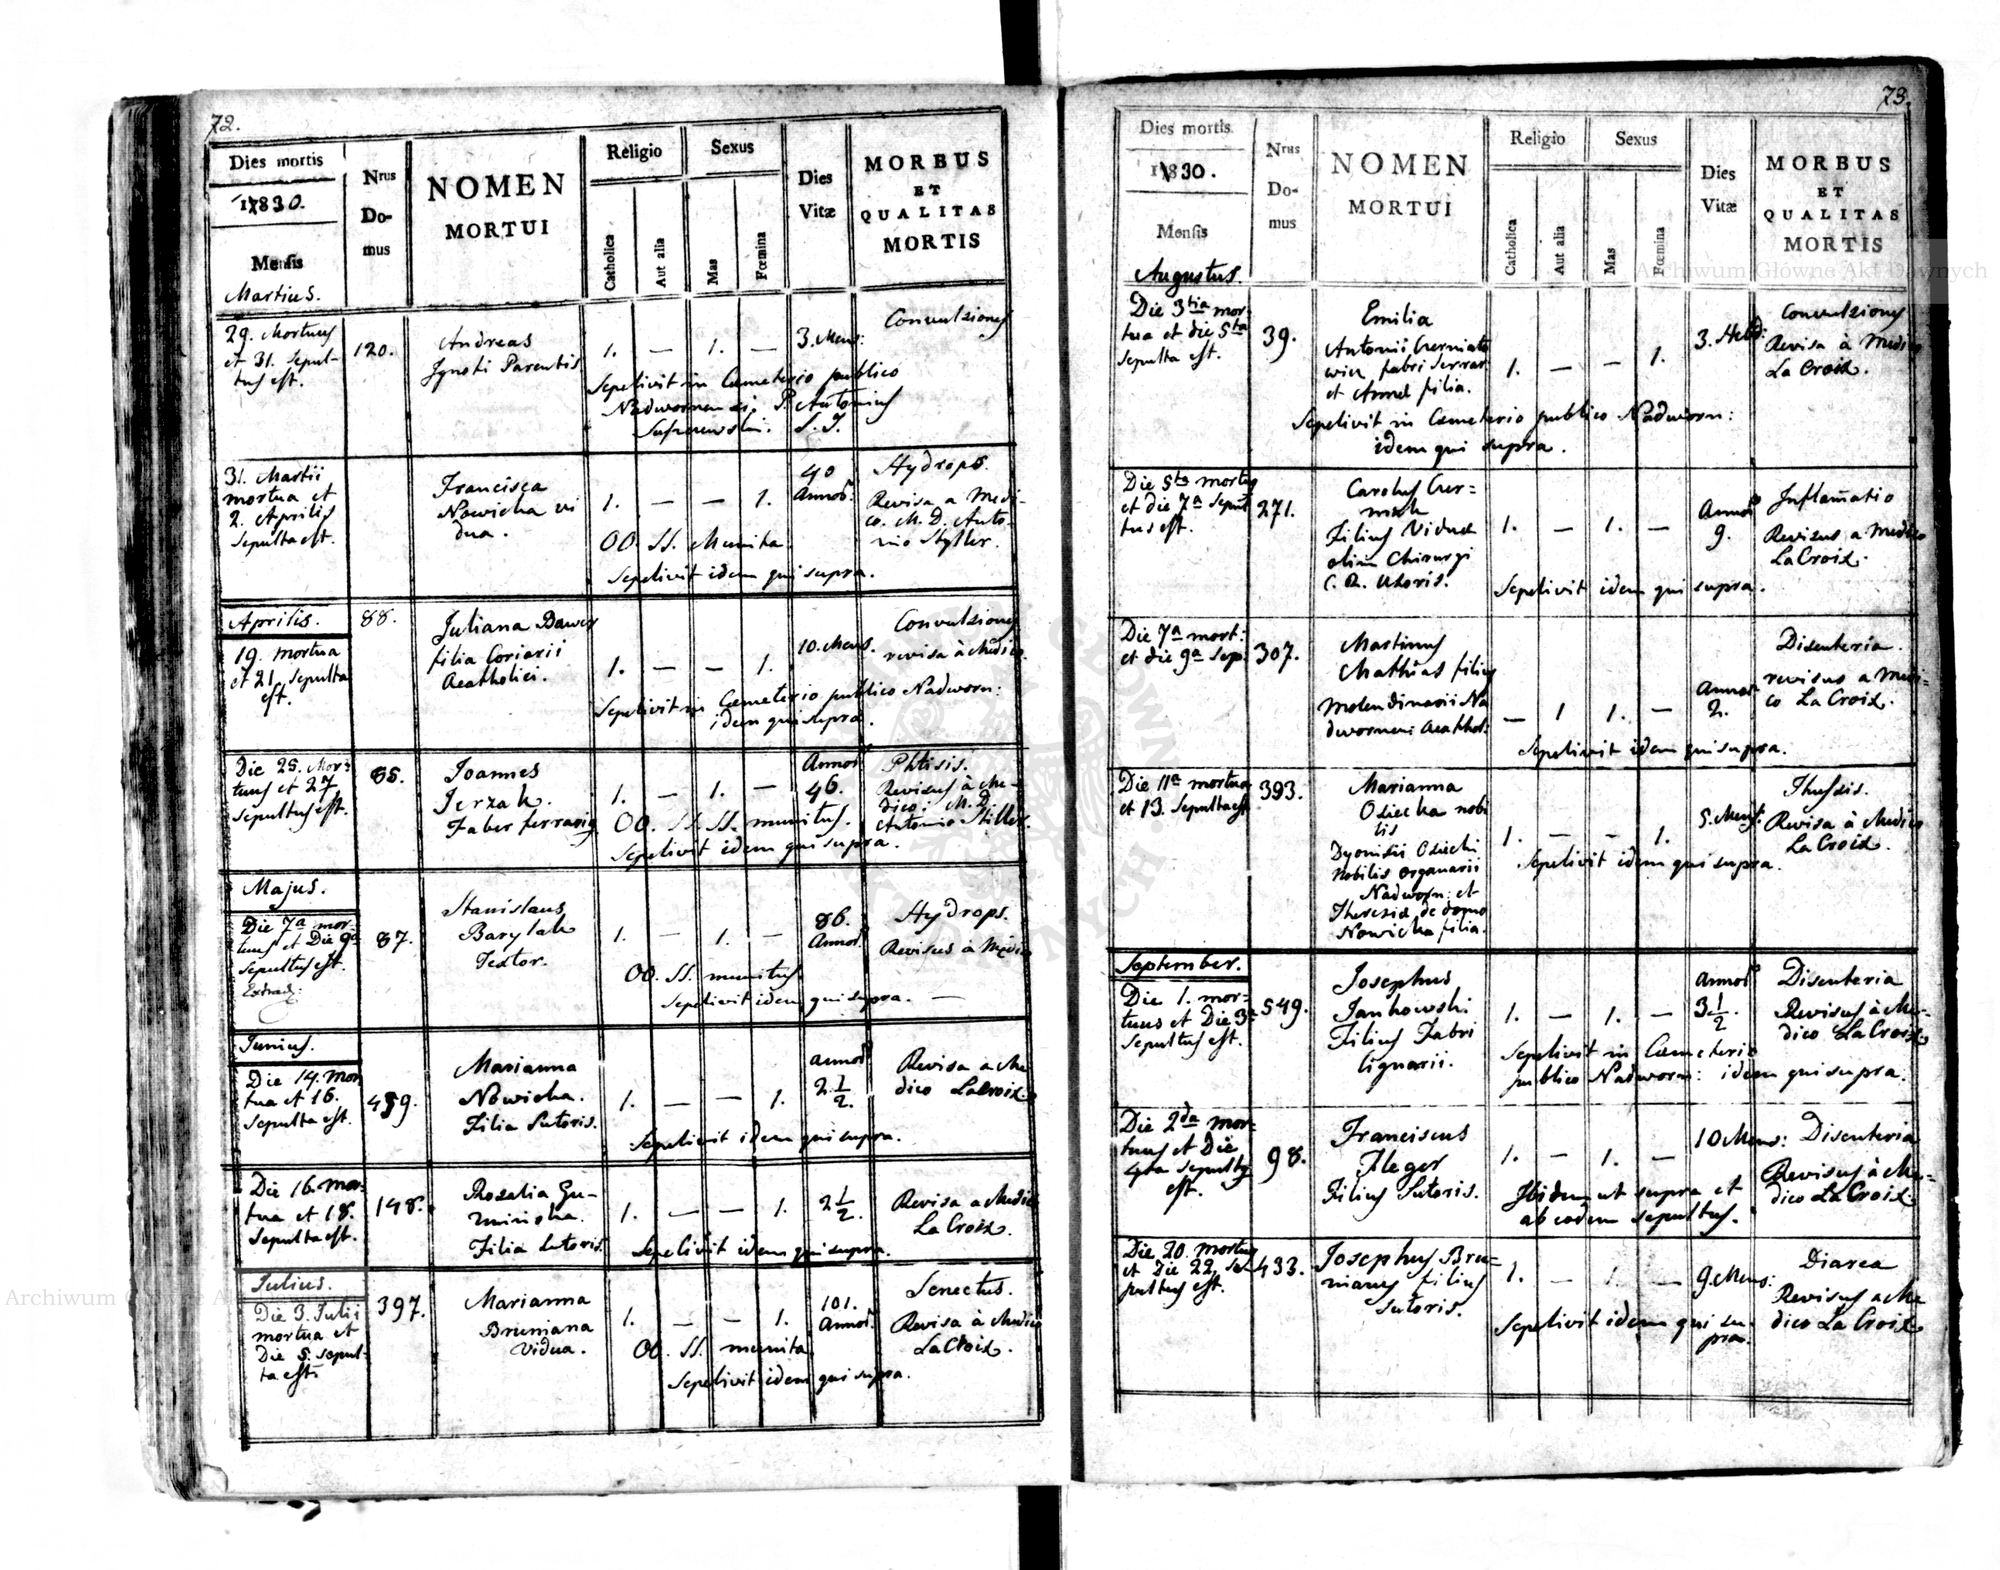 72.
Dies mortis
1830.
Mensis
Martius.
Nrus
Do-
mus
NOMEN
MORTUI
Religio
Catholica
Aut alia
Sexus
Mas
Fœmina
Dies
Vitæ
MORBUS
ET
QUALITAS
MORTIS
29. Mortuus
et 31. Sepul-
tus est.
120.
Andreas
Ignoti Parentis
1. — 1. —
3. Mens:
Convulsiones
Sepelivit in Cæmeterio publico
Nadwornensi. P. Antonius
S. J.
31. Martii
mortua et
2. Aprilis
Sepulta est.
Francisca
Nowicka vi
dua.
1. — — 1.
40
Annor.
Hydrops.
Revisa a Medi-
co. M. D. Anto-
nio Styller.
OO. SS. Munita.
Sepelivit idem qui supra.
Aprilis.
19. Mortua
et 21. Sepulta
est.
88.
Juliana
filia Coriarii
Acatholici.
1. — — 1.
10. Mens.
Convulsiones
revisa à Medico.
Sepelivit in Cæmeterio publico Nadworn:
idem qui supra.
Die 25. Mor-
tuus et 27
Sepultus est.
85.
Joannes
Jerzak.
Faber ferrarius
1. — 1. —
Annor.
46.
Phtisis.
Revisus à Me-
dico: M. D.
Antonio Stiller.
OO. SS. munitus.
Sepelivit idem qui supra.
Majus.
Die 7a mor-
tuus et Die 9a
Sepultus est.
87.
Stanislaus
Barylak
Textor.
1. — 1. —
86.
Annor.
Hydrops.
Revisus à Medico
OO. SS. munitus
Sepelivit idem qui supra. —
Junius.
Die 14. Mor
tua et 16.
Sepulta est.
459.
Marianna
Nowicka.
Filia Sutoris.
1. — — 1.
Annor.
2 1/2.
Revisa a Me
dico LaCroix.
Sepelivit idem qui supra.
Die 16. Mor-
tua et 18.
Sepulta est.
148.
Rosalia
Filia Sutoris.
1. — — 1.
2 1/2.
Revisa a Medico
La Croix.
Sepelivit idem qui supra.
Julius.
Die 3. Julii
mortua et
Die 5. sepul-
ta est.
397.
Marianna
Bruniana
Vidua.
1. — — 1.
101.
Annor.
Senectus.
Revisa à Medico
LaCroix.
OO. SS. munita.
Sepelivit idem qui supra.
73.
Dies mortis.
1830.
Mensis
Augustus.
Nrus
Do-
mus
NOMEN
MORTUI
Religio
Catholica
Aut alia
Sexus
Mas
Fœmina
Dies
Vitæ
MORBUS
ET
QUALITAS
MORTIS
Die 3tia mor-
tua et die 5ta
sepulta est.
39.
Emilia
Antonii Czerniato
wicz fabri Serrar
et Annæ filia.
1. — — 1.
3. Hebd:
Convulsiones
Revisa à Medico
La Croix.
Sepelivit in Cæmeterio publico Nadworn:
idem qui supra.
Die 5ta mortuus
et die 7a sepul
tus est.
271.
Carolus Czer-
mak
Filius Viduæ
olim Chirurgi
C. R. Uxoris.
1. — 1. —
Annor
9.
Inflamatio
Revisus a Medico
LaCroix.
Sepelivit idem qui supra.
Die 7a mort:
et die 9a sep.
307.
Martinus
Mathias filius
Molendinarii Na
dwornen: Acathol:
— 1 1. —
Annor
2.
Disenteria.
revisus a Medi-
co La Croix.
Sepelivit idem qui supra.
Die 11a mortua
et 13. Sepulta est
393.
Marianna
Osiecka nobi
lis
Dyonisii Osiecki
Nobilis organarii
Nadworn: et
Theresiæ de domo
Nowicka filia.
1. — — 1.
5. Mens:
Thussis.
Revisa à Medico
La Croix.
Sepelivit idem qui supra.
September.
Die 1. mor-
tuus et Die 3a
Sepultus est.
549.
Josephus
Jankowski
Filius Fabri
lignarii.
1. — 1. —
Annor
3 1/2.
Disenteria
Revisus à Me-
dico LaCroix
Sepelivit in Cæmeterio
publico Nadworn: idem qui supra.
Die 2da mor-
tuus et Die
4ta sepultus
est.
98.
Franciscus
Fleger
Filius Sutoris.
1. — 1. —
10 Mens:
Disenteria
Revisus à Me-
dico LaCroix.
Ibidem ut supra et
ab eodem sepultus.
Die 20. mortuus
et Die 22. Se-
pultus est.
433.
Josephus Bru-
nianus filius
Sutoris.
1. — 1. —
9. Mens:
Diarea
Revisus a Me
dico La Croix
Sepelivit idem qui su-
pra.
Archiwum Główne Akt Dawnych